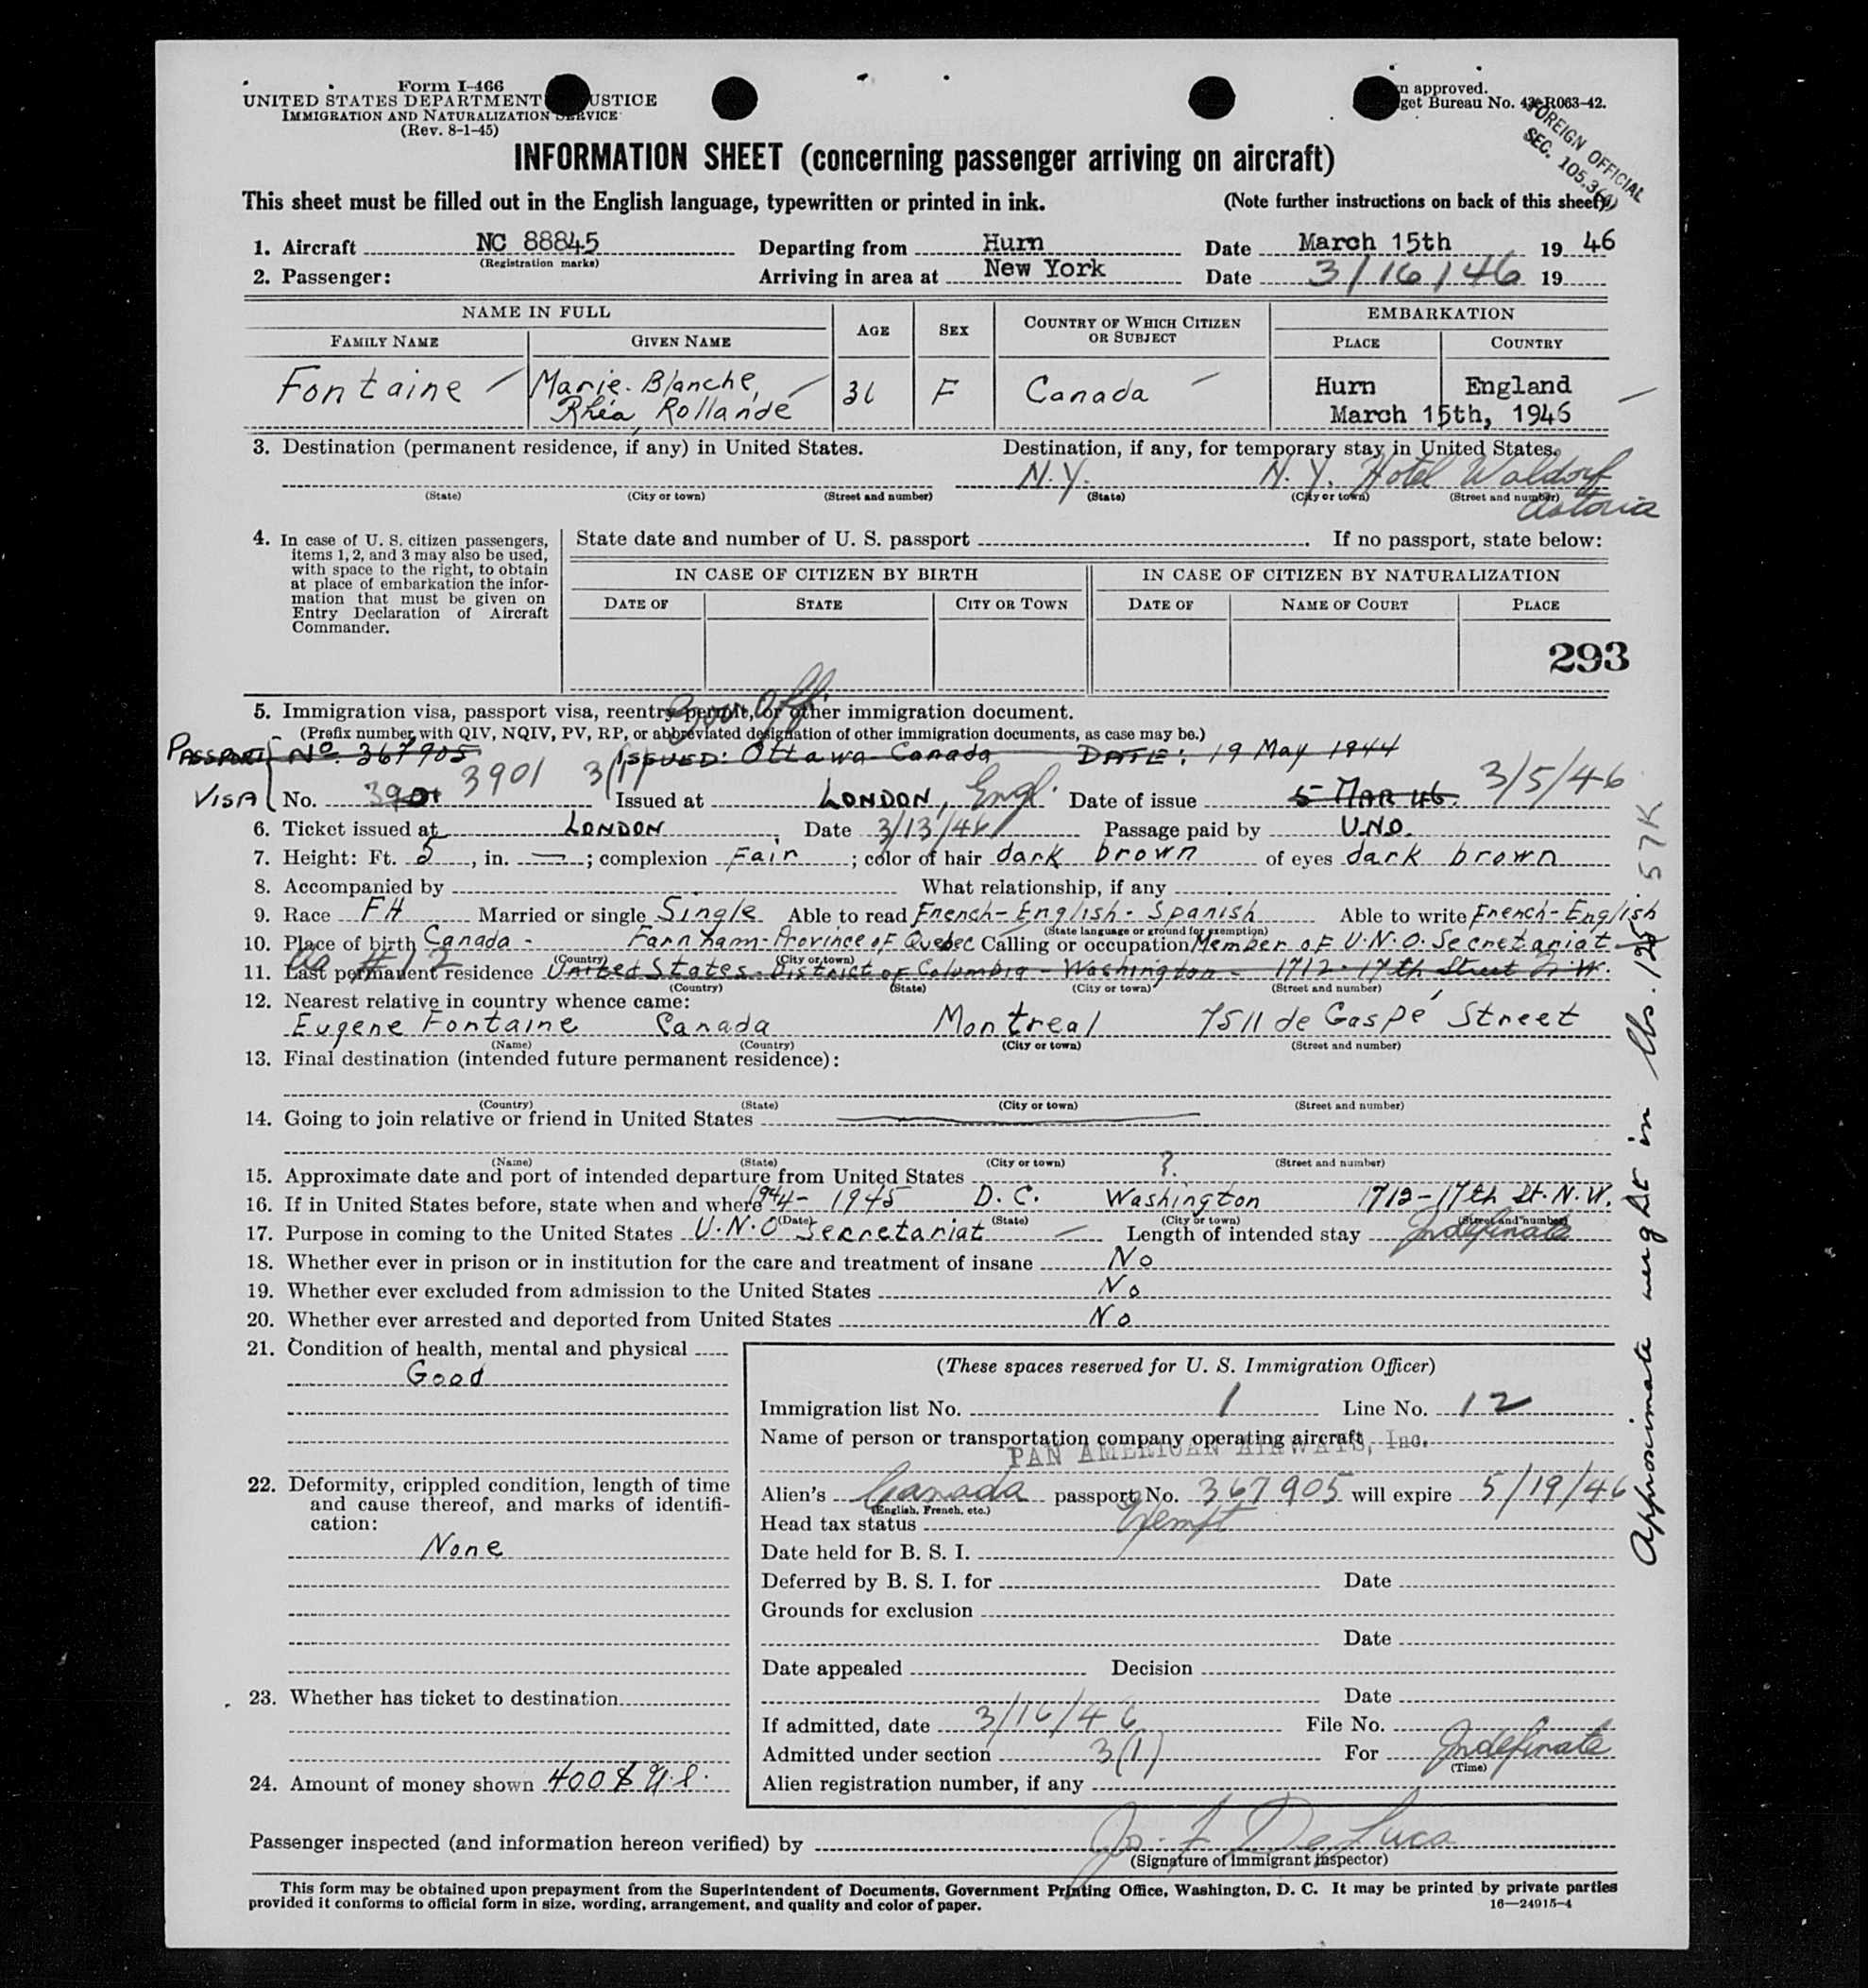 Form I-466
UNITED STATES DEPARTMENT USTICE
IMMIGRATION AND NATURALIZATION SERVICE
(Rev. 8-1-45)
n approved.
get Bureau No. 43-R063-42.
FOREIGN OFFICIAL
SEC. 105.3
INFORMATION SHEET (concerning passenger arriving on aircraft)
This sheet must be filled out in the English language, typewritten or printed in ink. (Note further instructions on back of this sheet)
1. Aircraft NC 88845 Departing from Hurn Date March 15th 19 46
(Registration marks)
2. Passenger: Arriving in area at New York Date 3/16/46 19
NAME IN FULL AGE SEX COUNTRY OF WHICH CITIZEN OR SUBJECT EMBARKATION
FAMILY NAME GIVEN NAME PLACE COUNTRY
Fontaine Marie-Blanche, 31 F Canada Hurn England
Rhéa Rollande March 15th, 1946
3. Destination (permanent residence, if any) in United States. Destination, if any, for temporary stay in United States.
N.Y. N.Y. Hotel Waldorf
(State) (City or town) (Street and number) (State) (City or town) (Street and number)
Astoria
4. In case of U. S. citizen passengers, items 1, 2, and 3 may also be used, with space to the right, to obtain at place of embarkation the information that must be given on Entry Declaration of Aircraft Commander.
State date and number of U. S. passport . If no passport, state below:
IN CASE OF CITIZEN BY BIRTH IN CASE OF CITIZEN BY NATURALIZATION
DATE OF STATE CITY OR TOWN DATE OF NAME OF COURT PLACE
293
Gov Off.
5. Immigration visa, passport visa, reentry permit, or other immigration document.
(Prefix number with QIV, NQIV, PV, RP, or abbreviated designation of other immigration documents, as case may be.)
PASSPORT No. 367905 ISSUED: Ottawa Canada DATE: 19 May 1944
VISA No. 3901 3901 3(1) Issued at LONDON, Engl. Date of issue 5 MAR 46. 3/5/46
6. Ticket issued at LONDON, Date 3/13/46 Passage paid by U.N.O.
7. Height: Ft. 5, in. —; complexion Fair; color of hair dark brown of eyes dark brown
8. Accompanied by What relationship, if any
9. Race FH Married or single Single Able to read French-English-Spanish Able to write French-English
(State language or ground for exemption)
10. Place of birth Canada - Farnham-Province of Quebec Calling or occupation Member of U.N.O. Secretariat
(Country) (City or town)
as #12
11. Last permanent residence United States-District of Columbia-Washington-1712-17th Street N.W.
(Country) (State) (City or town) (Street and number)
12. Nearest relative in country whence came:
Eugene Fontaine Canada Montreal 7511 de Gaspé Street
(Name) (Country) (City or town) (Street and number)
13. Final destination (intended future permanent residence):
(Country) (State) (City or town) (Street and number)
14. Going to join relative or friend in United States
(Name) (State) (City or town) (Street and number)
15. Approximate date and port of intended departure from United States ?.
16. If in United States before, state when and where 1944-1945 D.C. Washington 1712-17th St. N.W.
(Date) (State) (City or town) (Street and number)
17. Purpose in coming to the United States U.N.O Secretariat Length of intended stay Indefinate
18. Whether ever in prison or in institution for the care and treatment of insane No
19. Whether ever excluded from admission to the United States No
20. Whether ever arrested and deported from United States No
21. Condition of health, mental and physical
Good
22. Deformity, crippled condition, length of time and cause thereof, and marks of identification:
None
23. Whether has ticket to destination
24. Amount of money shown 400 $ U.S.
(These spaces reserved for U. S. Immigration Officer)
Immigration list No. 1 Line No. 12
Name of person or transportation company operating aircraft
PAN AMERICAN AIRWAYS, Inc.
Alien's Canada passport No. 367905 will expire 5/19/46
(English, French, etc.)
Head tax status Exempt
Date held for B. S. I.
Deferred by B. S. I. for Date
Grounds for exclusion
Date
Date appealed Decision
Date
If admitted, date 3/16/46 File No.
Admitted under section 3(1) For Indefinate
(Time)
Alien registration number, if any
Passenger inspected (and information hereon verified) by Jo. F DeLuca
(Signature of Immigrant Inspector)
This form may be obtained upon prepayment from the Superintendent of Documents, Government Printing Office, Washington, D. C. It may be printed by private parties
provided it conforms to official form in size, wording, arrangement, and quality and color of paper. 16—24915-4
Approximate weight in lbs. 125. 57K